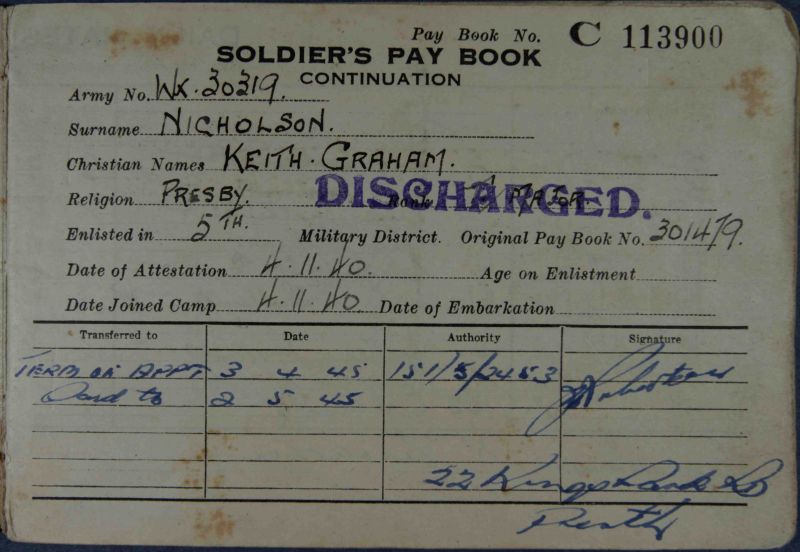 Pay Book No. C 113900
SOLDIER'S PAY BOOK
CONTINUATION
Army No. WX.30319.
Surname NICHOLSON.
Christian Names KEITH. GRAHAM.
Religion PRESBY. Rank MAJOR.
DISCHARGED.
Enlisted in 5TH. Military District. Original Pay Book No. 301479.
Date of Attestation 4.11.40. Age on Enlistment
Date Joined Camp 4.11.40 Date of Embarkation
Transferred to Date Authority Signature
TERM OF APPT 3 4 45 151/5/2453
Paid to 2 5 45
22 Kings Park Rd
Perth